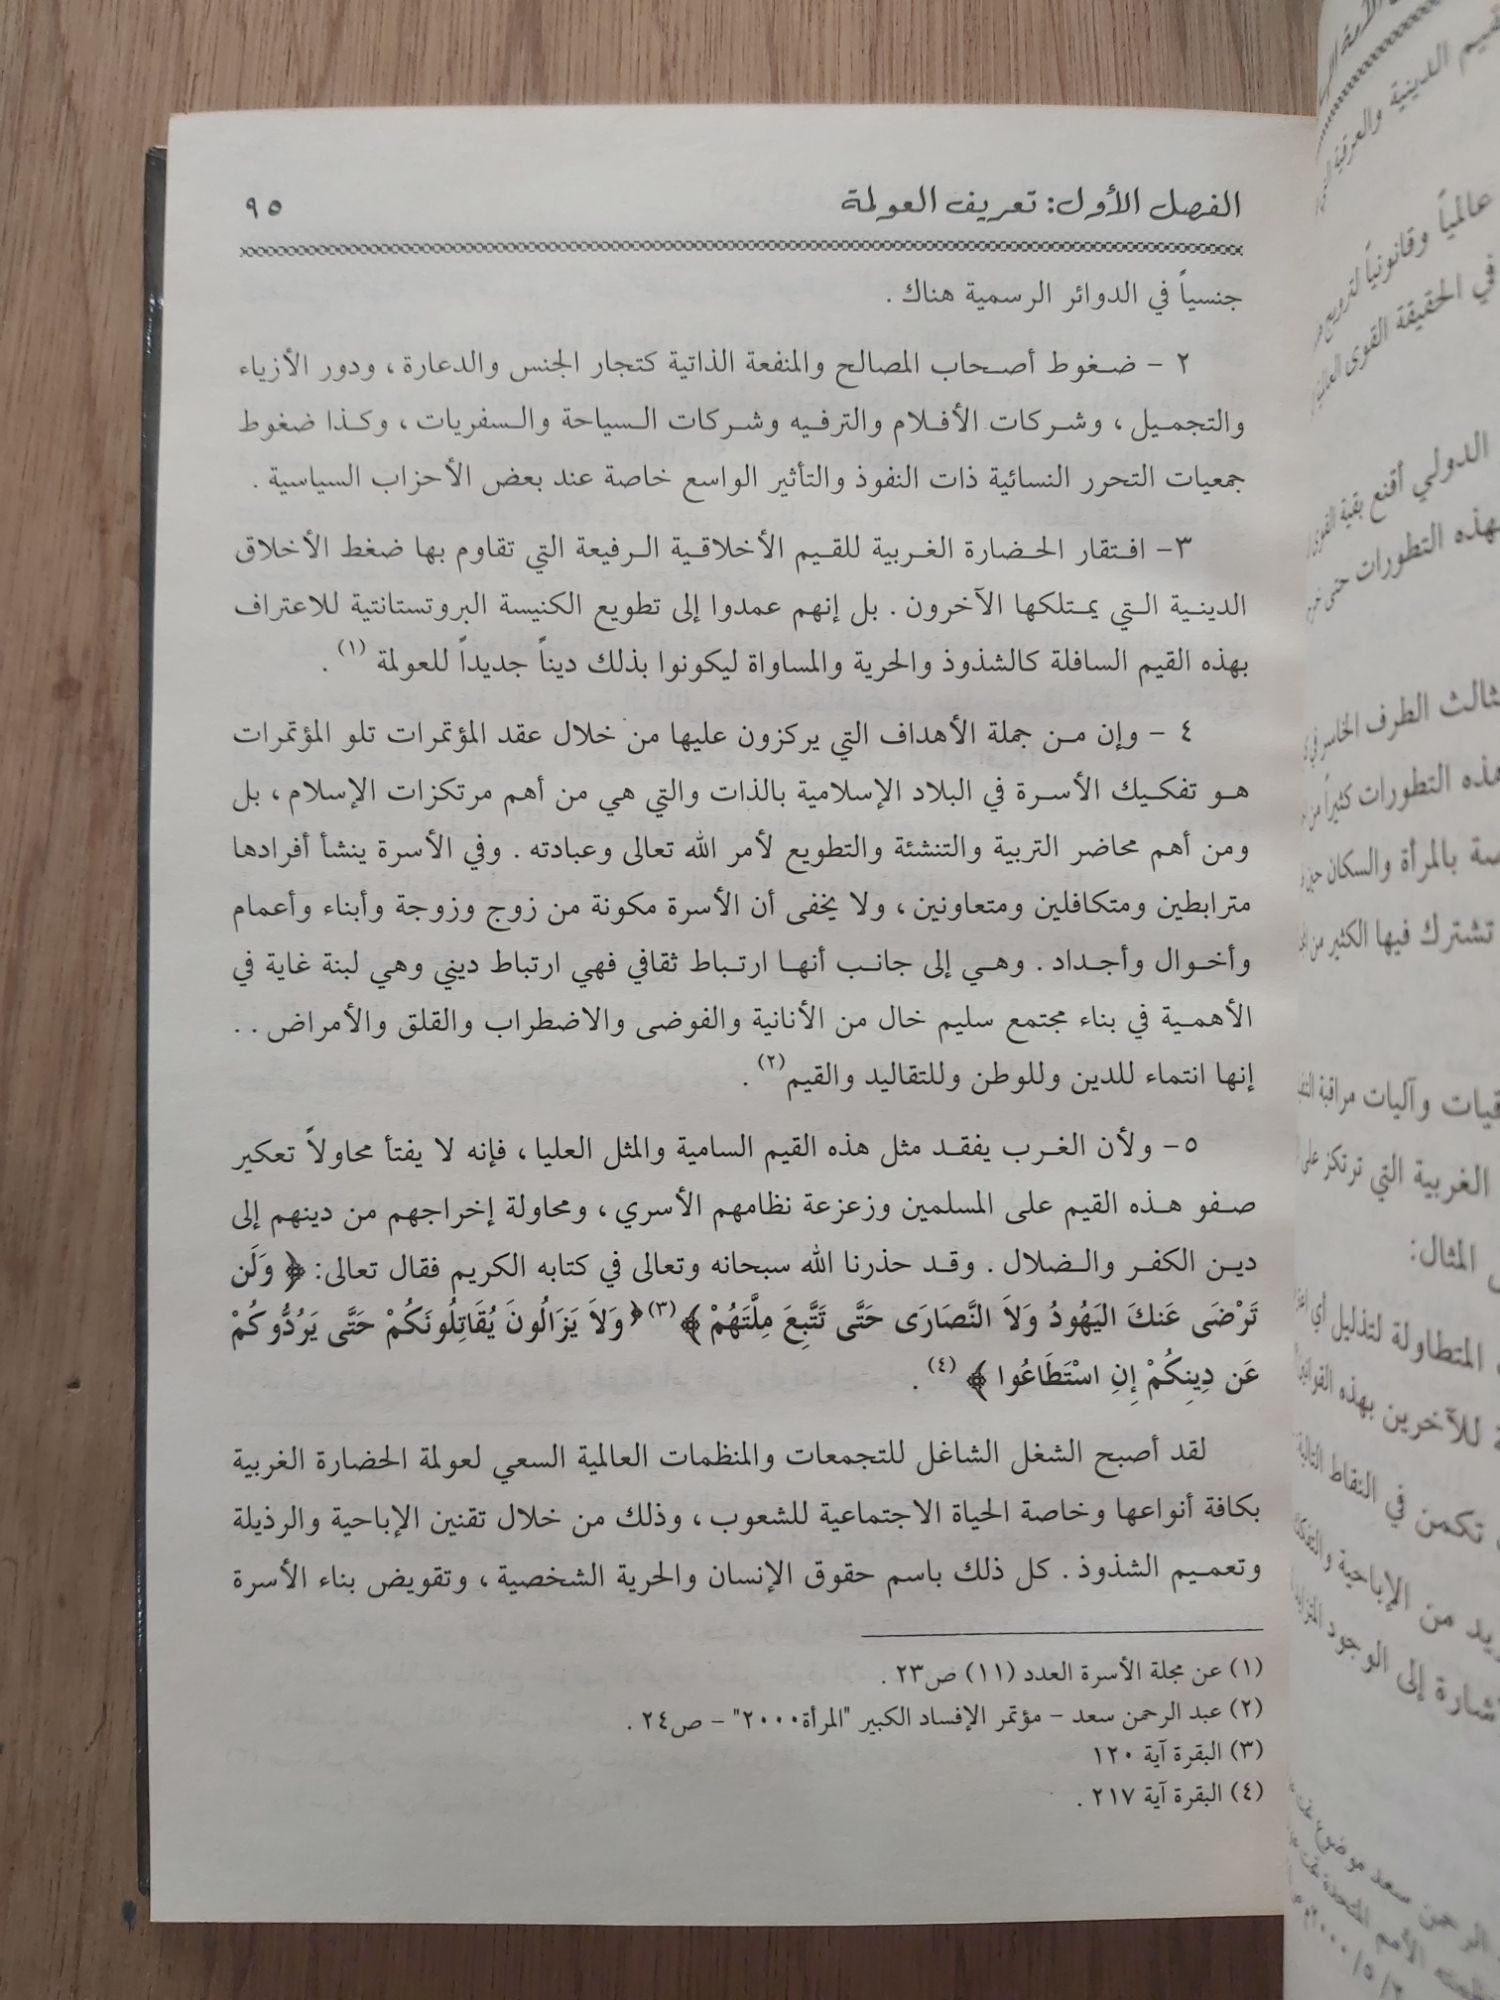 الفصل الأول: تعريف العولمة
٩٥
جنسياً في الدوائر الرسمية هناك .
٢ - ضغوط أصحاب المصالح والمنفعة الذاتية كتجار الجنس والدعارة ، ودور الأزياء
والتجميل ، وشركات الأفلام والترفيه وشركات السياحة والسفريات ، وكذا ضغوط
جمعيات التحرر النسائية ذات النفوذ والتأثير الواسع خاصة عند بعض الأحزاب السياسية .
٣- افتقار الحضارة الغربية للقيم الأخلاقية الرفيعة التي تقاوم بها ضغط الأخلاق
الدينية التي يمتلكها الآخرون . بل إنهم عمدوا إلى تطويع الكنيسة البروتستانتية للاعتراف
بهذه القيم السافلة كالشذوذ والحرية والمساواة ليكونوا بذلك ديناً جديداً للعولمة (١) .
٤ - وإن من جملة الأهداف التي يركزون عليها من خلال عقد المؤتمرات تلو المؤتمرات
هو تفكيك الأسرة في البلاد الإسلامية بالذات والتي هي من أهم مرتكزات الإسلام ، بل
ومن أهم محاضر التربية والتنشئة والتطويع لأمر الله تعالى وعبادته . وفي الأسرة ينشأ أفرادها
مترابطين ومتكافلين ومتعاونين ، ولا يخفى أن الأسرة مكونة من زوج وزوجة وأبناء وأعمام
وأخوال وأجداد . وهي إلى جانب أنها ارتباط ثقافي فهي ارتباط ديني وهي لبنة غاية في
الأهمية في بناء مجتمع سليم خال من الأنانية والفوضى والاضطراب والقلق والأمراض . .
إنها انتماء للدين وللوطن وللتقاليد والقيم(٢) .
٥- ولأن الغرب يفقد مثل هذه القيم السامية والمثل العليا ، فإنه لا يفتأ محاولاً تعكير
صفو هذه القيم على المسلمين وزعزعة نظامهم الأسري ، ومحاولة إخراجهم من دينهم إلى
دين الكفر والضلال . وقد حذرنا الله سبحانه وتعالى في كتابه الكريم فقال تعالى: ﴿ وَلَن
تَرْضَى عَنكَ اليَهُودُ وَلاَ النَّصَارَى حَتَّى تَتَّبِعَ مِلَّتَهُمْ ﴾(٣)﴿ وَلاَ يَزَالُونَ يُقَاتِلُونَكُمْ حَتَّى يَرُدُّوكُمْ
عَن دِينِكُمْ إِنِ اسْتَطَاعُوا ﴾ (٤) .
لقد أصبح الشغل الشاغل للتجمعات والمنظمات العالمية السعي لعولمة الحضارة الغربية
بكافة أنواعها وخاصة الحياة الاجتماعية للشعوب ، وذلك من خلال تقنين الإباحية والرذيلة
وتعميم الشذوذ . كل ذلك باسم حقوق الإنسان والحرية الشخصية ، وتقويض بناء الأسرة
(١) عن مجلة الأسرة العدد (١١) ص٢٣ .
(٢) عبد الرحمن سعد - مؤتمر الإفساد الكبير "المرأة٢٠٠٠" - ص٢٤ .
(٣) البقرة آية ١٢٠
(٤) البقرة آية ٢١٧ .
القيم الدينية والعرقية
عالمياً وقانونياً لترويج
في الحقيقة القوى
الدولي أقنع بقية القوى
بهذه التطورات حتى
الثالث الطرف الخاسر في
هذه التطورات كثيراً من
بالمرأة والسكان
تشترك فيها الكثير من
وآليات مراقبة
الغربية التي ترتكز على
المثال:
المتطاولة لتذليل أي
للآخرين بهذه
تكمن في النقاط التالية
من الإباحية
إلى الوجود